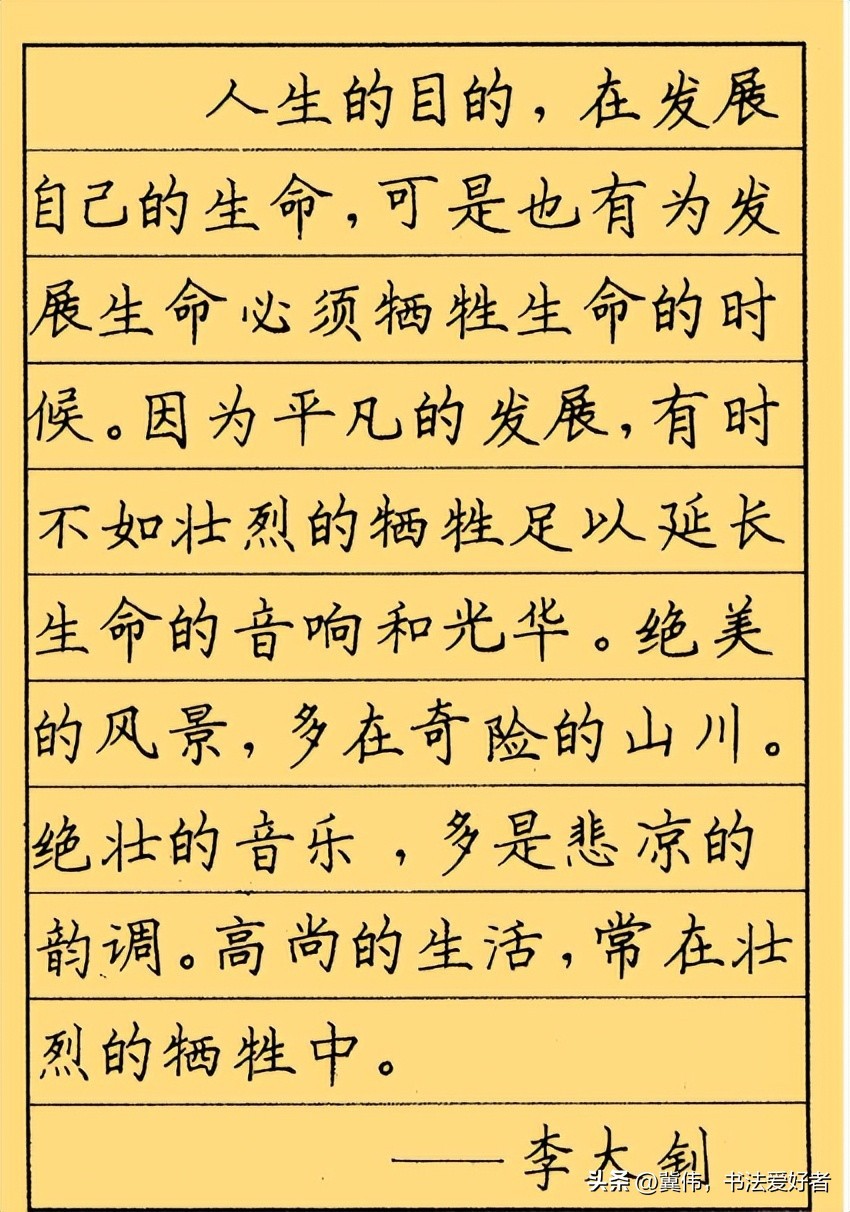 人生的目的，在发展
自己的生命，可是也有为发
展生命必须牺牲生命的时
候。因为平凡的发展，有时
不如壮烈的牺牲足以延长
生命的音响和光华。绝美
的风景，多在奇险的山川。
绝壮的音乐，多是悲凉的
韵调。高尚的生活，常在壮
烈的牺牲中。
——李大钊
头条 @冀伟，书法爱好者